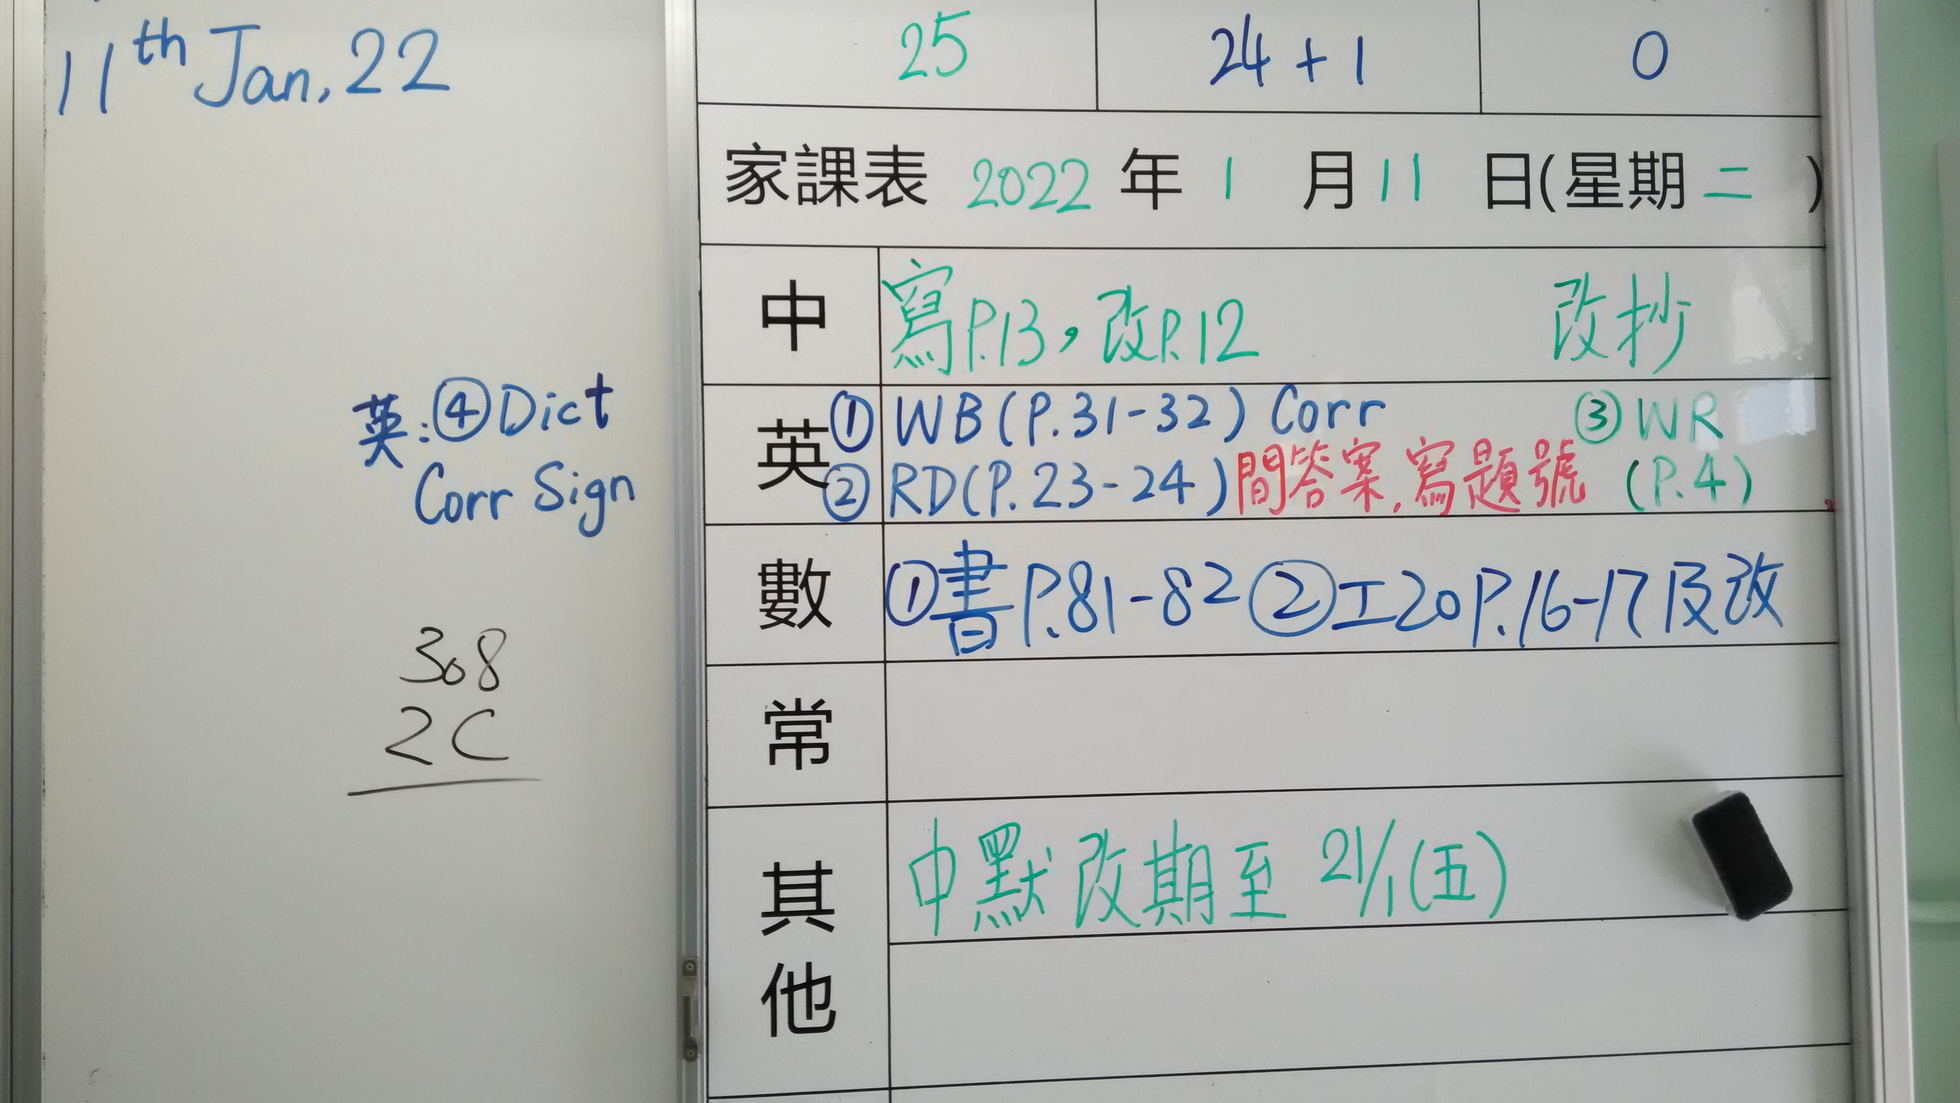 11th Jan, 22
英:④Dict
Corr Sign
308
2C
25 24+1 0
家課表 2022 年 1 月 11 日(星期 二 )
中 寫P.13,改P.12 改抄
英 ① WB(P.31-32) Corr ③ WR
② RD(P.23-24)問答案,寫題號 (P.4)
數 ①書P.81-82 ②工20P.16-17及改
常
其他 中默改期至 21/1(五)